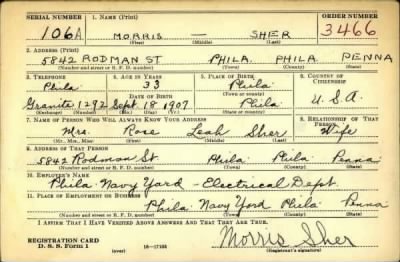 SERIAL NUMBER 1. NAME (Print) ORDER NUMBER
106A MORRIS — SHER 3466
(First) (Middle) (Last)
2. ADDRESS (Print)
5842 RODMAN ST PHILA. PHILA. PENNA
(Number and street or R. F. D. number) (Town) (County) (State)
3. TELEPHONE 4. AGE IN YEARS 5. PLACE OF BIRTH 6. COUNTRY OF CITIZENSHIP
Phila 33 Phila
DATE OF BIRTH (Town or county)
Granite 1292 Sept. 18 1907 Phila U.S.A.
(Exchange) (Number) (Mo.) (Day) (Yr.) (State or country)
7. NAME OF PERSON WHO WILL ALWAYS KNOW YOUR ADDRESS 8. RELATIONSHIP OF THAT PERSON
Mrs. Rose Leah Sher Wife
(Mr., Mrs., Miss) (First) (Middle) (Last)
9. ADDRESS OF THAT PERSON
5842 Rodman St. Phila Phila Penna
(Number and street or R. F. D. number) (Town) (County) (State)
10. EMPLOYER'S NAME
Phila Navy Yard - Electrical Dept.
11. PLACE OF EMPLOYMENT OR BUSINESS
Phila. Navy Yard Phila Penna
(Number and street or R. F. D. number) (Town) (County) (State)
I AFFIRM THAT I HAVE VERIFIED ABOVE ANSWERS AND THAT THEY ARE TRUE.
REGISTRATION CARD
D. S. S. Form 1 (over) Morris Sher
(Registrant's signature)